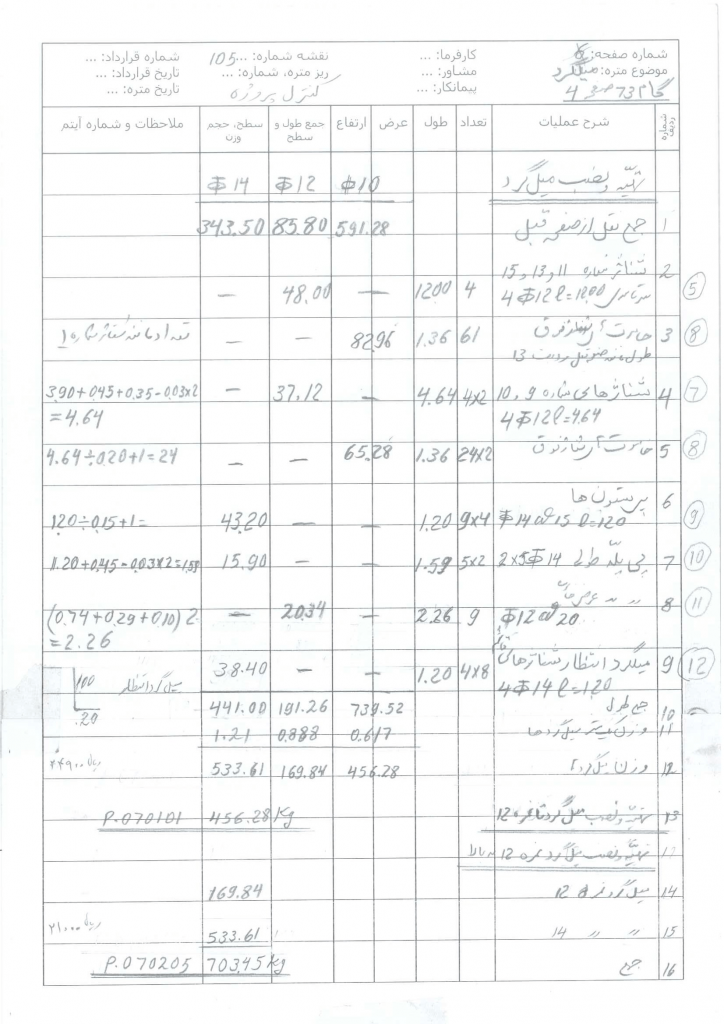 شماره صفحه: 6 کارفرما: ... نقشه شماره: ...105 شماره قرارداد: ...
موضوع متره: میلگرد مشاور: ... ریز متره، شماره: ... تاریخ قرارداد: ...
گام 73 صفحه 4 پیمانکار: ... کنترل پروژه تاریخ متره: ...
شماره ردیف شرح عملیات تعداد طول عرض ارتفاع جمع طول و سطح سطح، حجم وزن ملاحظات و شماره آیتم
تهیه و نصب میل گرد Φ10 Φ12 Φ14
1 جمع نقل از صفحه قبل 591.28 85.80 343.50
2 شناژ شماره 11 و 13 و 15
⑤ 4Φ12 l=1200 4 1200 — 48.00 —
⑧ 3 شناژ فوق 61 1.36 82.96 شماره 1
13
⑦ 4 شناژهای شماره 9 و 10 4x2 4.64 — 37.12 — 3.90+0.45+0.35-0.03x2
4Φ12 l=4.64 = 4.64
⑧ 5 شناژ فوق 24x2 1.36 65.28 — — 4.64÷0.20+1=24
6 پی ستون ها
⑨ Φ14@15 l=120 9x4 1.20 — — 43.20 120÷0.15+1=
⑩ 7 پی پله طولی 2x5Φ14 5x2 1.59 — — 15.90 1.20+0.45-0.03x2=1.59
⑪ 8 〃 〃 عرضی
Φ12@20 9 2.26 20.34 — (0.74+0.29+0.10)2
=2.26
⑫ 9 میلگرد انتظار شناژهای قائم 4x8 1.20 — — 38.40 میل گرد انتظار 100
4Φ14 l=120 .20
10 جمع طول 739.52 191.26 441.00
11 وزن یک متر میل گردها 0.617 0.888 1.21
12 وزن میل گرد 456.28 169.84 533.61 ۲۴۹۰۰ ریال
13 تهیه و نصب میل گرد تا نمره 12 456.28 Kg P.070101
تهیه و نصب میل گرد نمره 12 به بالا
14 میل گرد نمره 12 169.84
15 〃 〃 14 533.61 ۲۱۰۰۰ ریال
16 جمع 703.45 Kg P.070205